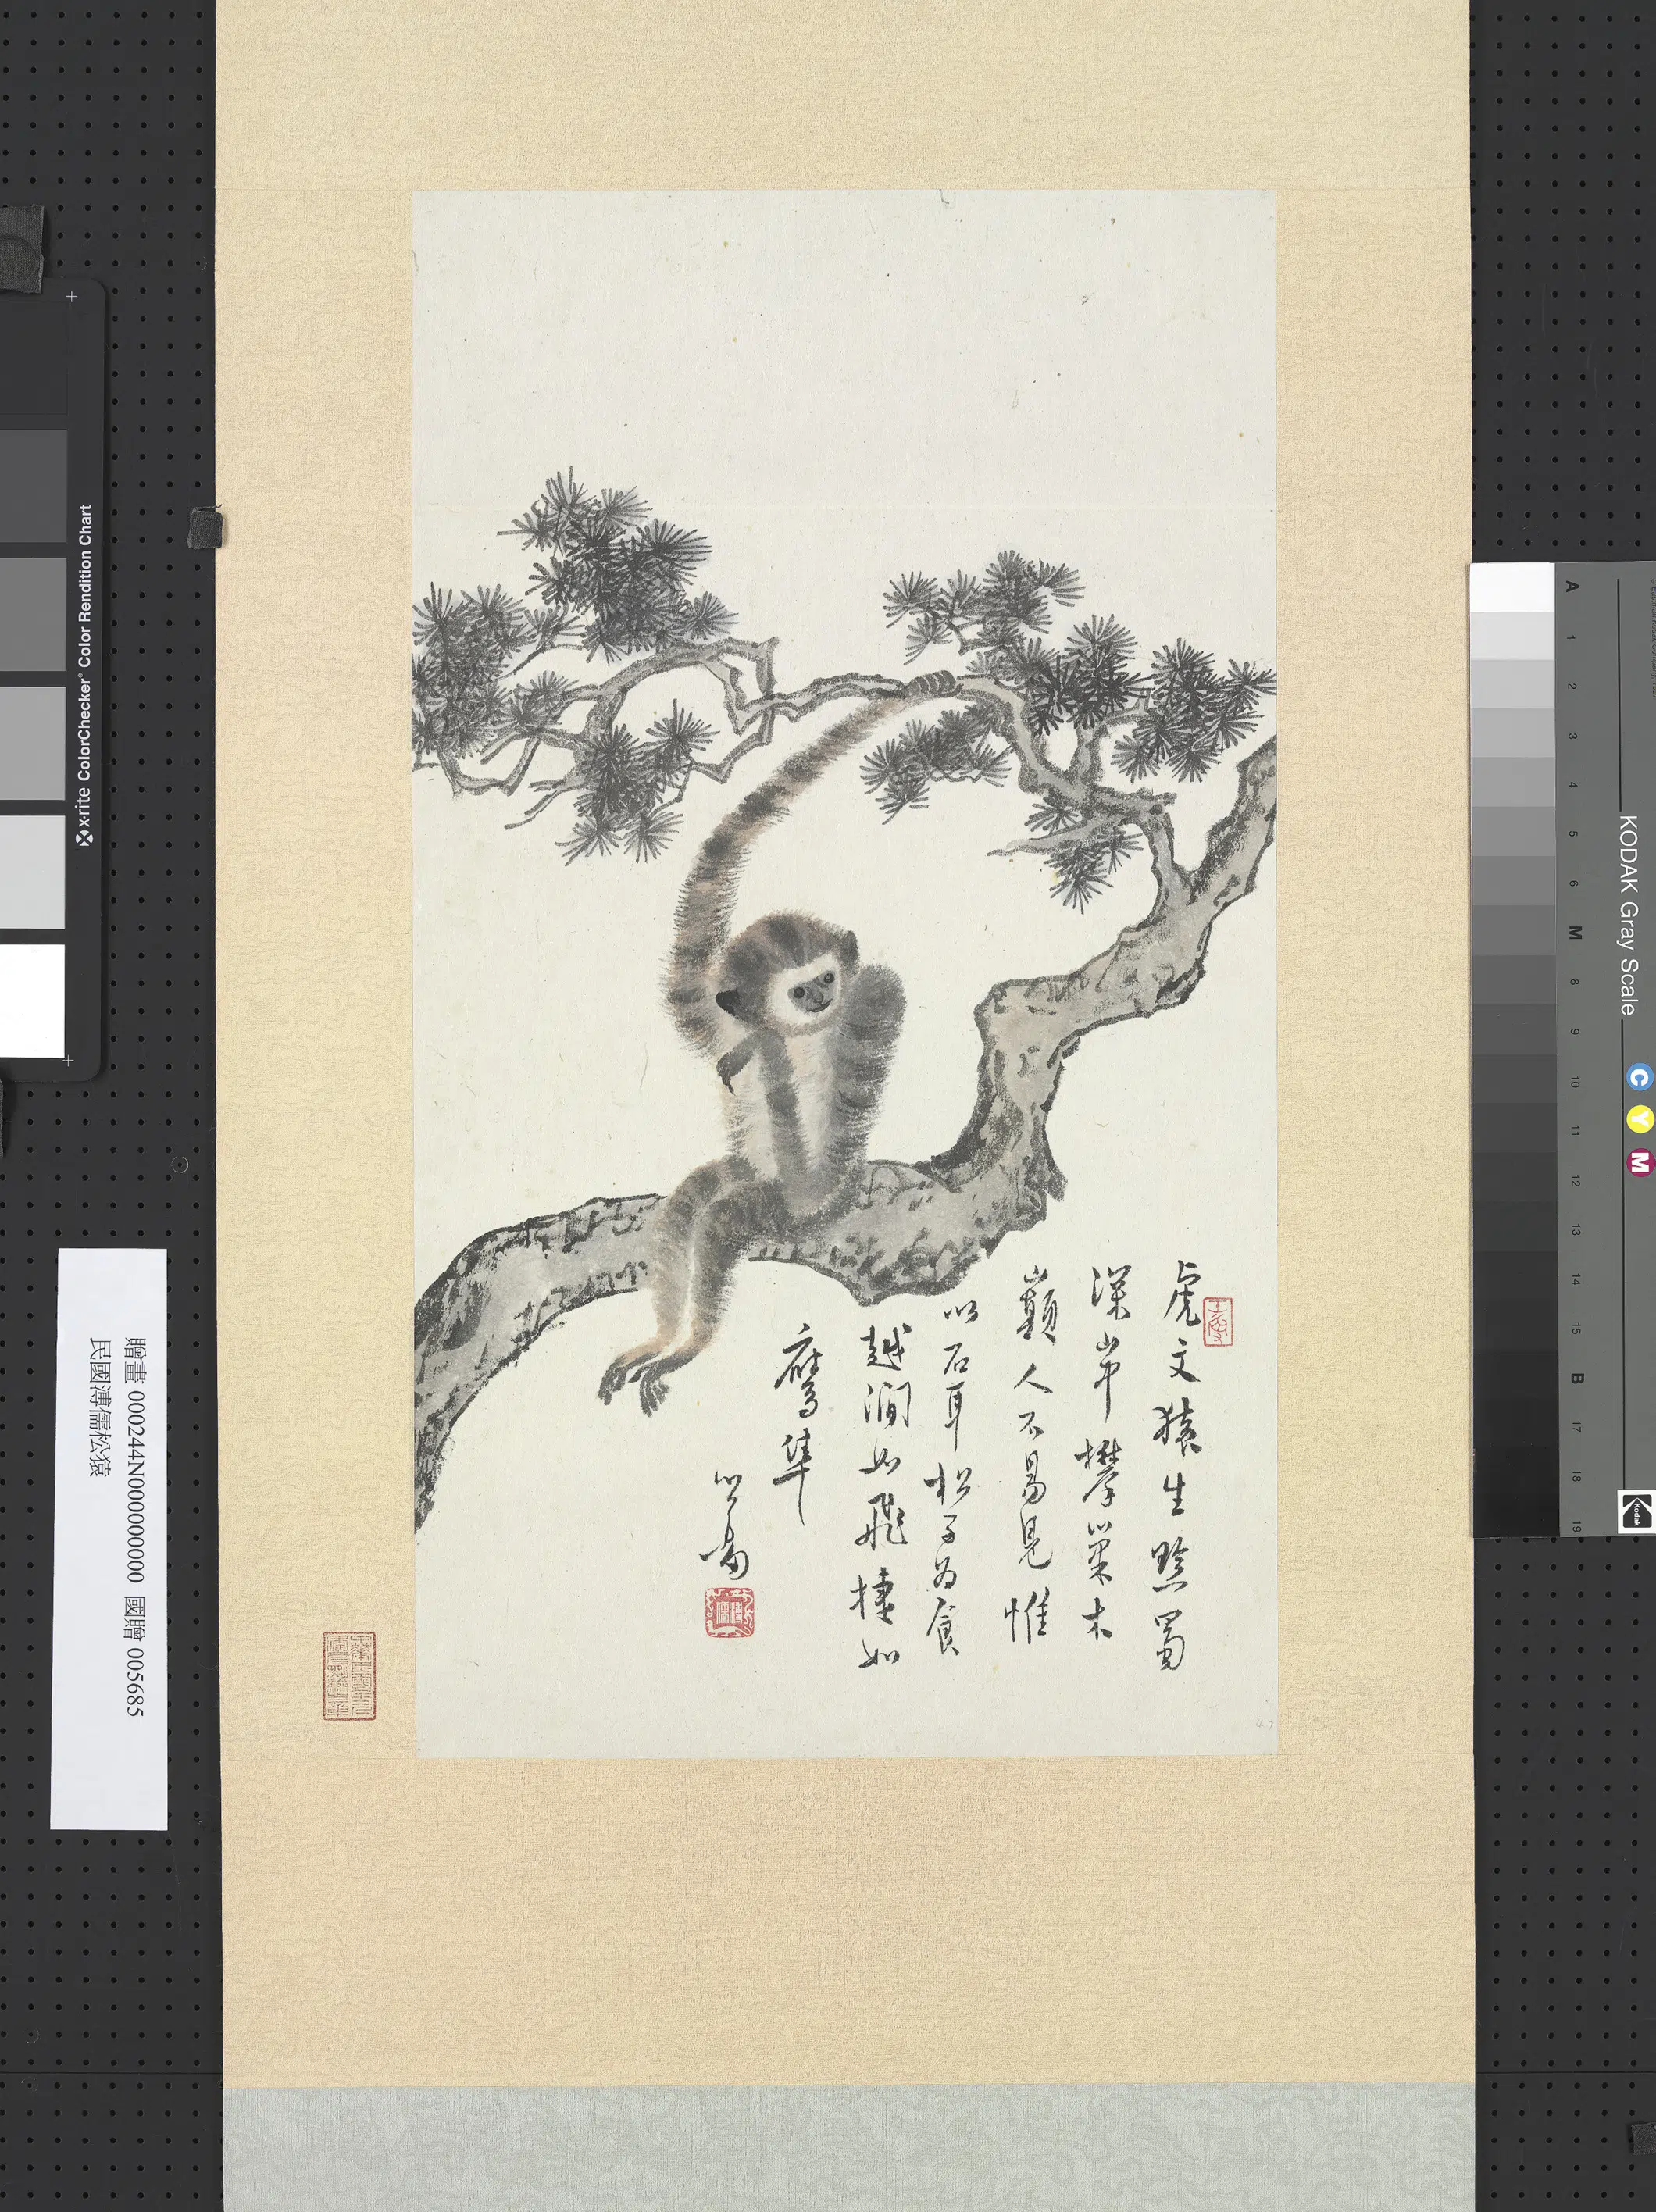 虎文猿生黔蜀
深山中攀巢木
巔人不易見惟
以石耳松子為食
越澗如飛捷如
鷹隼
心畬
贈畫 000244N000000000 國贈 005685
民國溥儒松猿
x-rite ColorChecker® Color Rendition Chart
KODAK Gray Scale
C
Y
M
Kodak
A 1 2 3 4 5 6 M 8 9 10 11 12 13 14 15 B 17 18 19